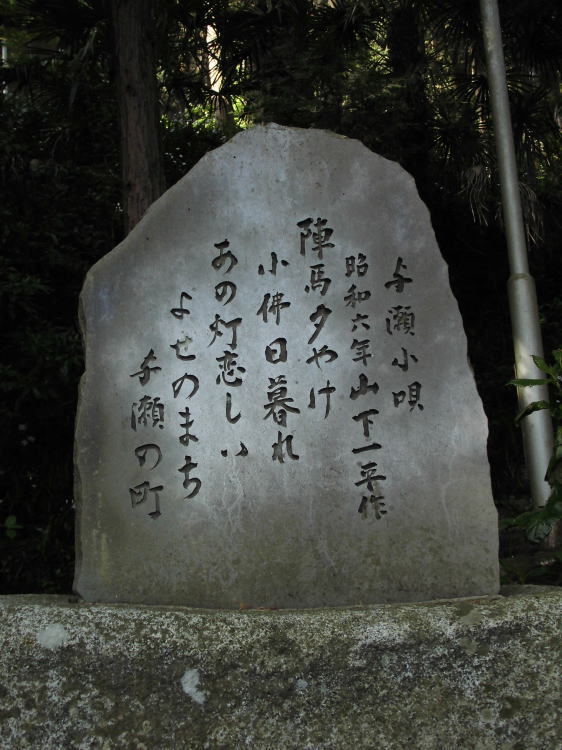 与瀬小唄
昭和六年山下一平作
陣馬夕やけ
小佛日暮れ
あの灯恋しい
よせのまち
与瀬の町